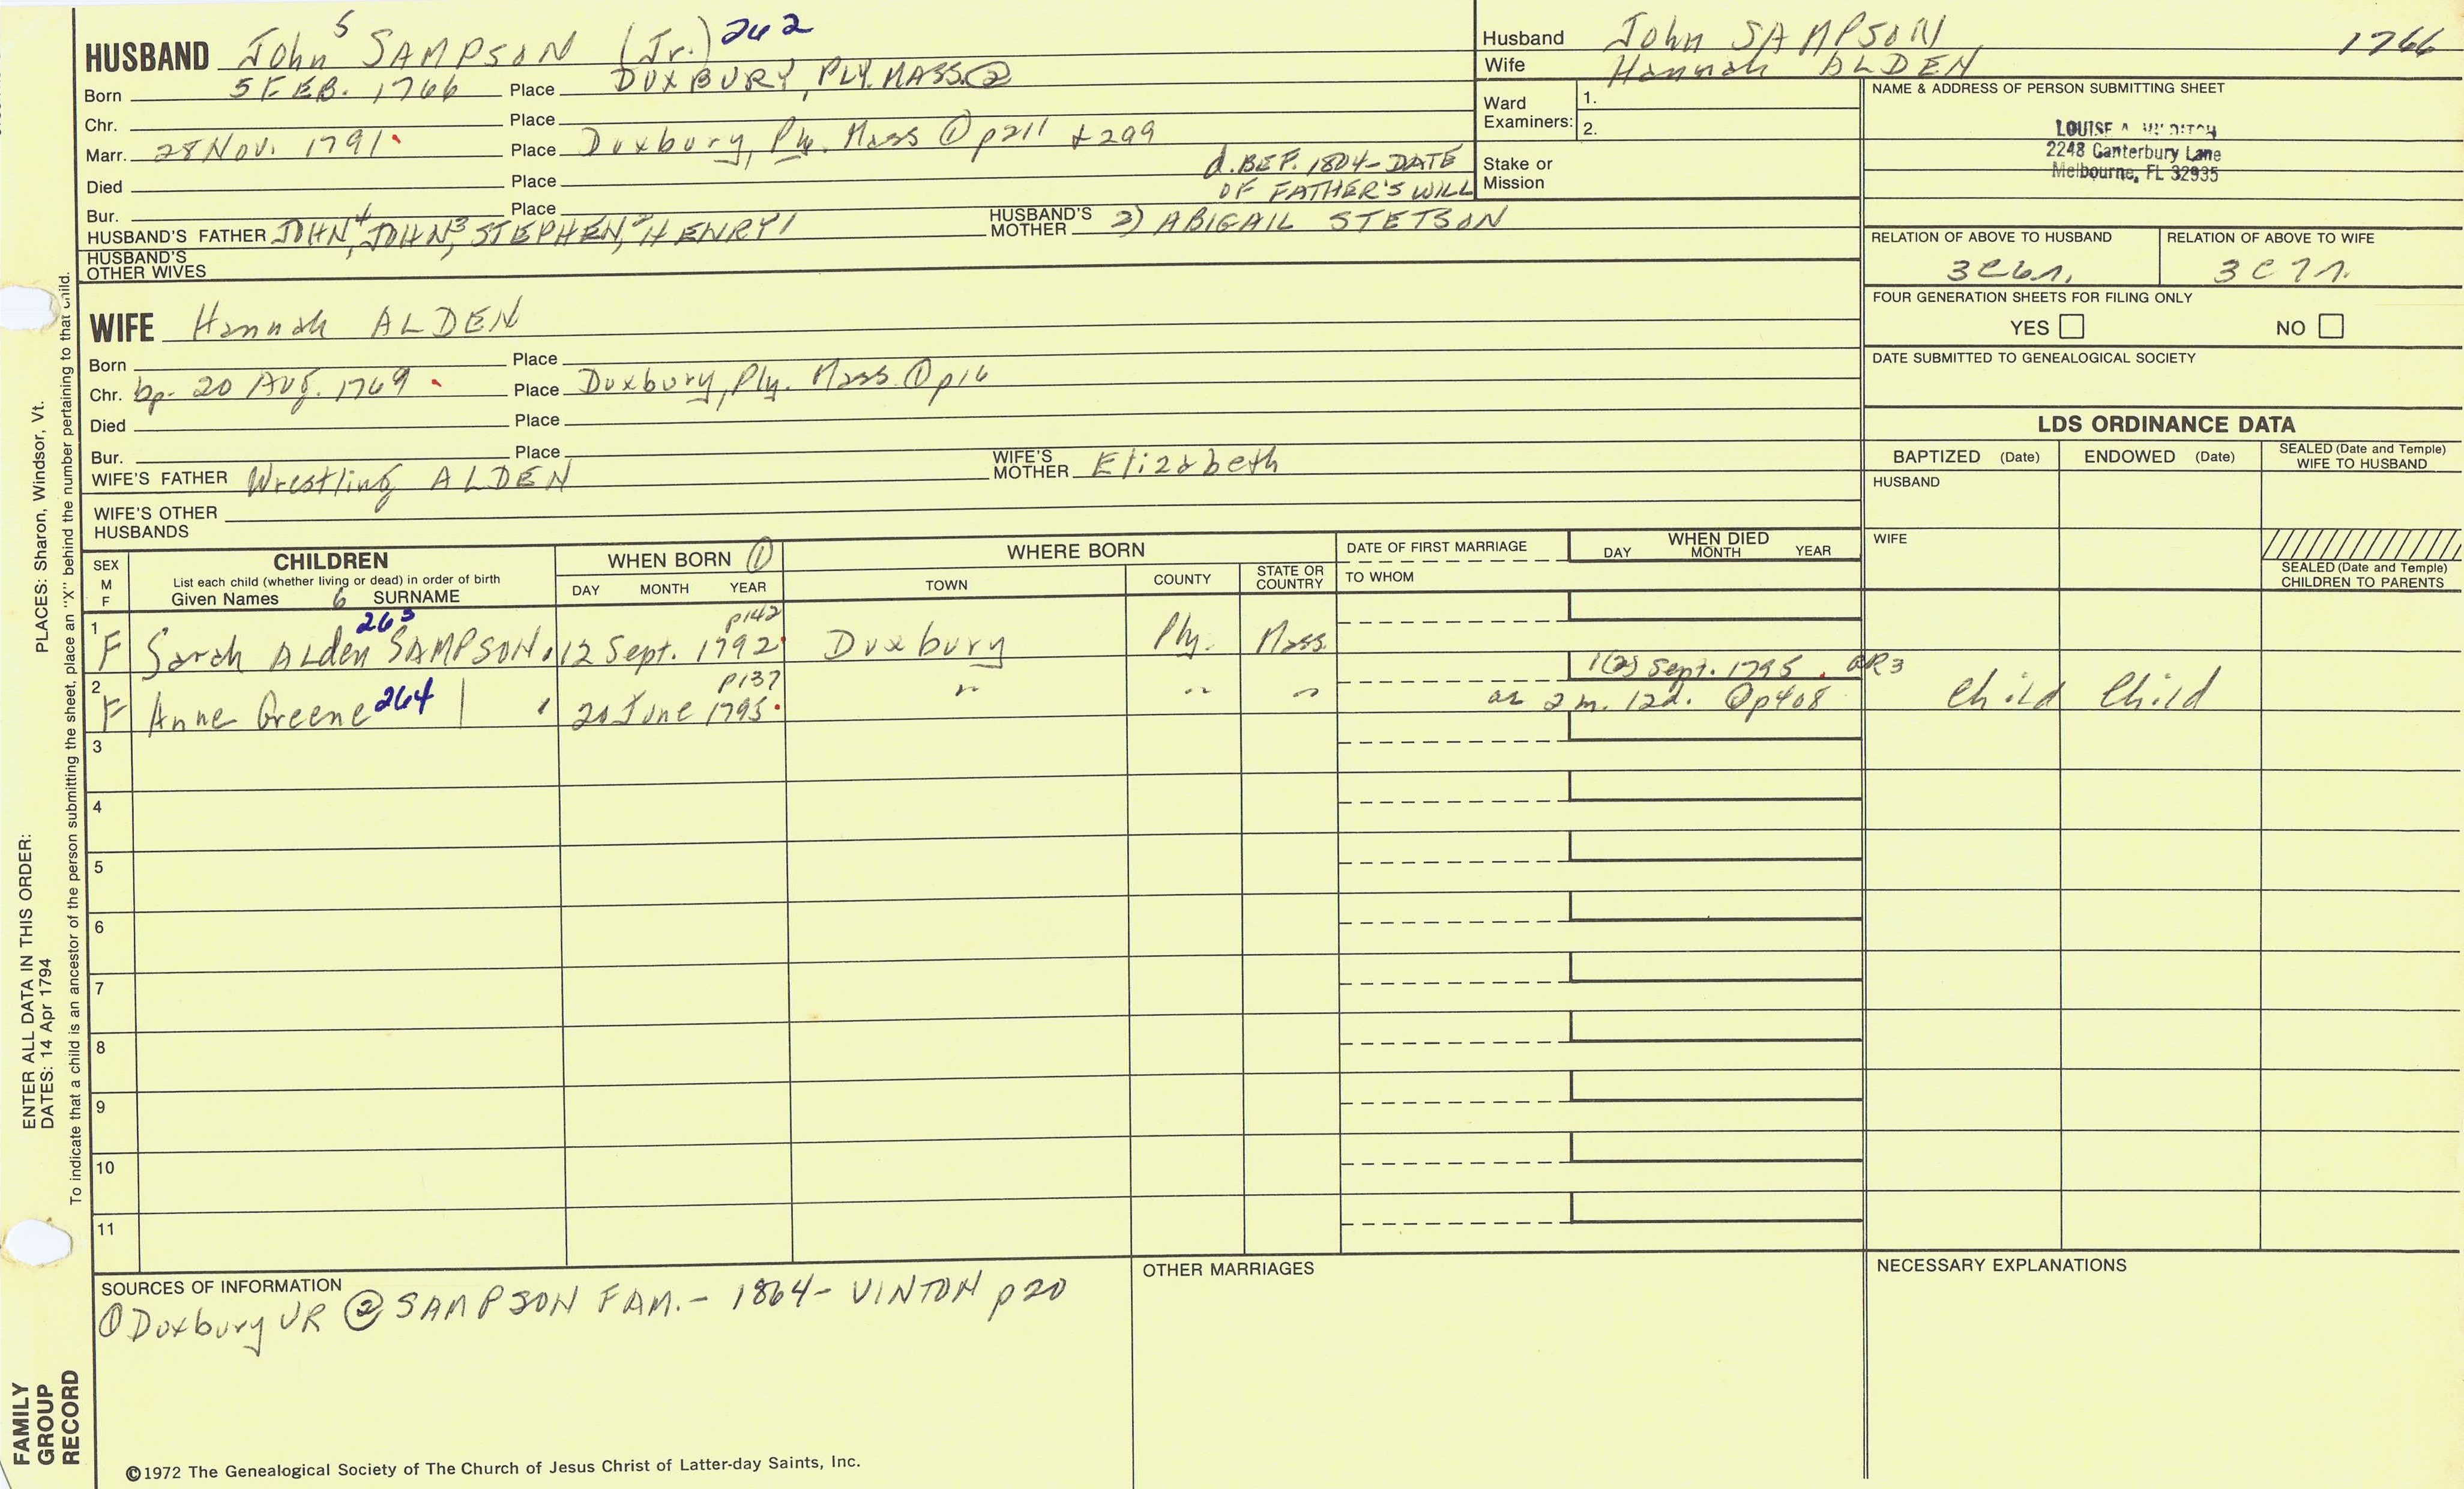 HUSBAND John⁵ SAMPSON (Jr.) 262
Born 5 FEB. 1766 Place DUXBURY, PLY. MASS. ②
Chr. Place
Marr. 28 Nov. 1791. Place Duxbury, Ply. Mass ① p211 + 299
Died Place
d. BEF. 1804 - DATE
OF FATHER'S WILL
Bur. Place
HUSBAND'S FATHER JOHN,⁴ JOHN,³ STEPHEN,² HENRY¹ HUSBAND'S MOTHER 2) ABIGAIL STETSON
HUSBAND'S OTHER WIVES
Husband John SAMPSON 1766
Wife Hannah ALDEN
Ward Examiners: 1.
2.
Stake or Mission
NAME & ADDRESS OF PERSON SUBMITTING SHEET
LOUISE A.
2248 Canterbury Lane
Melbourne, FL 32935
RELATION OF ABOVE TO HUSBAND RELATION OF ABOVE TO WIFE
3C6r. 3C7r.
FOUR GENERATION SHEETS FOR FILING ONLY
YES NO
DATE SUBMITTED TO GENEALOGICAL SOCIETY
WIFE Hannah ALDEN
Born Place
Chr. bp. 20 Aug. 1769. Place Duxbury, Ply. Mass. ① p16
Died Place
Bur. Place
WIFE'S FATHER Wrestling ALDEN WIFE'S MOTHER Elizabeth
WIFE'S OTHER HUSBANDS
LDS ORDINANCE DATA
BAPTIZED (Date) ENDOWED (Date) SEALED (Date and Temple) WIFE TO HUSBAND
HUSBAND
WIFE
SEALED (Date and Temple) CHILDREN TO PARENTS
SEX M F
CHILDREN
List each child (whether living or dead) in order of birth
Given Names 6 SURNAME
WHEN BORN ①
DAY MONTH YEAR
WHERE BORN
TOWN COUNTY STATE OR COUNTRY
DATE OF FIRST MARRIAGE
TO WHOM
WHEN DIED
DAY MONTH YEAR
263 p142
1 F Sarah Alden SAMPSON. 12 Sept. 1792. Duxbury Ply. Mass.
p137 1(2) Sept. 1795. GR3
2 F Anne Greene 264 20 June 1795. " " " ae 2 m. 12d. ① p408 Child Child
3
4
5
6
7
8
9
10
11
SOURCES OF INFORMATION
① Duxbury VR ② SAMPSON FAM. - 1864 - VINTON p20
OTHER MARRIAGES
NECESSARY EXPLANATIONS
©1972 The Genealogical Society of The Church of Jesus Christ of Latter-day Saints, Inc.
ENTER ALL DATA IN THIS ORDER:
DATES: 14 Apr 1794
PLACES: Sharon, Windsor, Vt.
To indicate that a child is an ancestor of the person submitting the sheet, place an "X" behind the number pertaining to that child.
FAMILY
GROUP
RECORD